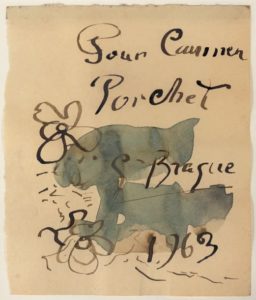 Pour Carmen
Porchet
G. Braque
1963